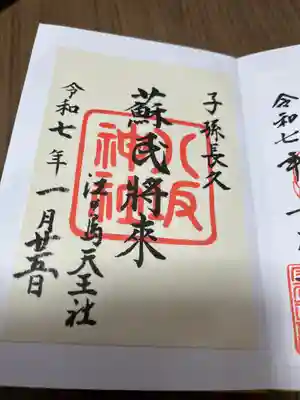 子孫長久
蘇民將來
八坂神社
江の馬天王社
令和七年一月廿五日
令和七年一